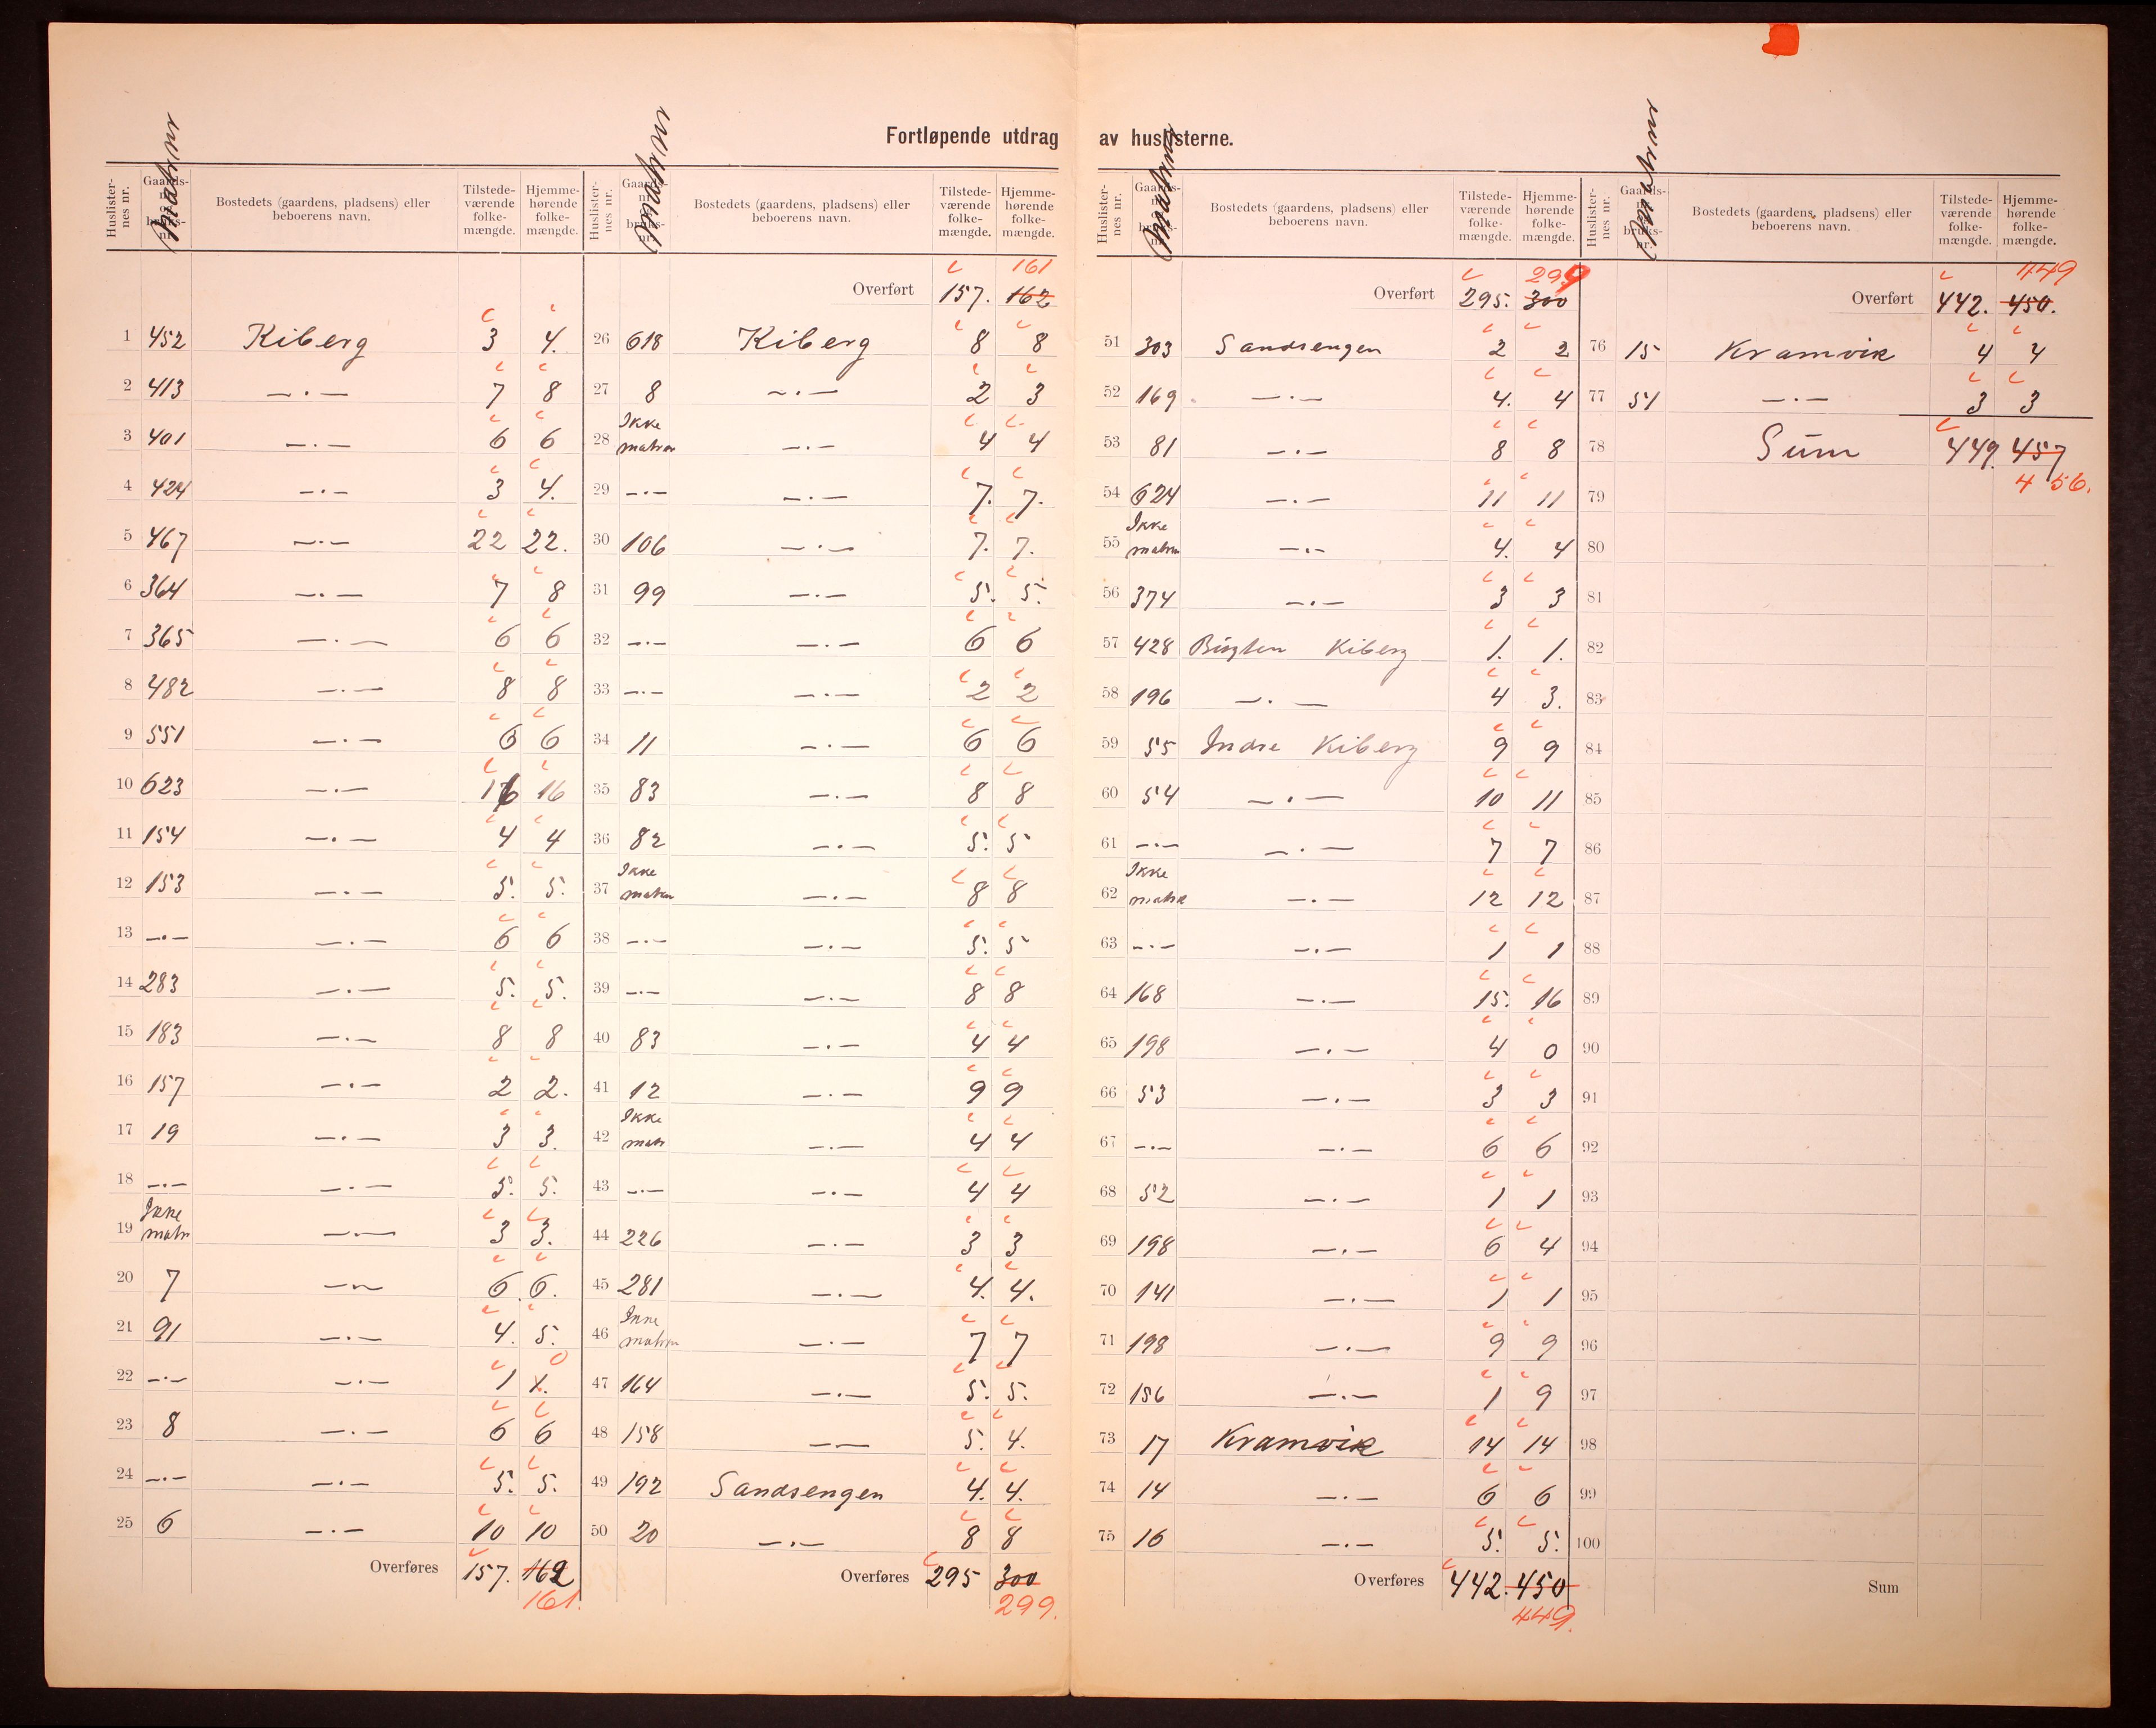 Fortløpende utdrag av huslisterne.
Huslister-nes nr. Gaards-nr. og bruks-nr. Matr nr Bostedets (gaardens, pladsens) eller beboerens navn. Tilstede-værende folke-mængde. Hjemme-hørende folke-mængde.
1 452 Kiberg 3 4.
2 413 —.— 7 8
3 401 —.— 6 6
4 424 —.— 3 4.
5 467 —.— 22 22.
6 364 —.— 7 8
7 365 —.— 6 6
8 482 —.— 8 8
9 551 —.— 6 6
10 623 —.— 16 16
11 154 —.— 4 4
12 153 —.— 5. 5.
13 —.— —.— 6 6
14 283 —.— 5. 5.
15 183 —.— 8 8
16 157 —.— 2 2.
17 19 —.— 3 3.
18 —.— —.— 5. 5.
19 Ikke matr —.— 3 3.
20 7 —.— 6 6.
21 91 —.— 4. 5.
22 —.— —.— 1 1. 0
23 8 —.— 6 6
24 —.— —.— 5. 5.
25 6 —.— 10 10
Overføres 157. 162
161.
Huslister-nes nr. Gaards-nr. og bruks-nr. Matr nr Bostedets (gaardens, pladsens) eller beboerens navn. Tilstede-værende folke-mængde. Hjemme-hørende folke-mængde.
161
Overført 157. 162
26 618 Kiberg 8 8
27 8 —.— 2 3
28 Ikke matr —.— 4 4
29 —.— —.— 7. 7.
30 106 —.— 7. 7.
31 99 —.— 5. 5.
32 —.— —.— 6 6
33 —.— —.— 2 2
34 11 —.— 6 6
35 83 —.— 8 8
36 82 —.— 5. 5
37 Ikke —.— 8 8
38 —.— —.— 5. 5
39 —.— —.— 8 8
40 83 —.— 4 4
41 12 —.— 9 9
42 Ikke matr —.— 4 4
43 —.— —.— 4 4
44 226 —.— 3 3
45 281 —.— 4. 4.
46 Ikke —.— 7 7
47 164 —.— 5. 5.
48 158 —— 5. 4.
49 192 Sandsengen 4. 4.
50 20 —.— 8 8
Overføres 295 300
299.
Huslister-nes nr. Gaards-nr. og bruks-nr. Matr nr Bostedets (gaardens, pladsens) eller beboerens navn. Tilstede-værende folke-mængde. Hjemme-hørende folke-mængde.
299
Overført 295. 300
51 303 Sandsengen 2 2
52 169 —.— 4. 4
53 81 —.— 8 8
54 624 —.— 11 11
55 Ikke —.— 4. 4
56 374 —.— 3 3
57 428 Bugten Kiberg 1. 1.
58 196 —.— 4 3.
59 55 Indre Kiberg 9 9
60 54 —.— 10 11
61 —.— —.— 7 7
62 Ikke —.— 12 12
63 —.— —.— 1 1
64 168 —.— 15. 16
65 198 —.— 4 0
66 53 —.— 3 3
67 —.— —.— 6 6
68 52 —.— 1 1
69 198 —.— 6 4
70 141 —.— 1 1
71 198 —.— 9 9
72 156 —.— 1 9
73 17 Kramvik 14 14
74 14 —.— 6 6
75 16 —.— 5. 5.
Overføres 442. 450
449.
Huslister-nes nr. Gaards-nr. og bruks-nr. Matr nr Bostedets (gaardens, pladsens) eller beboerens navn. Tilstede-værende folke-mængde. Hjemme-hørende folke-mængde.
449
Overført 442. 450.
76 15 Kramvik 4 4
77 51 —.— 3 3
78 Sum 449. 457
456.
79
80
81
82
83
84
85
86
87
88
89
90
91
92
93
94
95
96
97
98
99
100
Sum